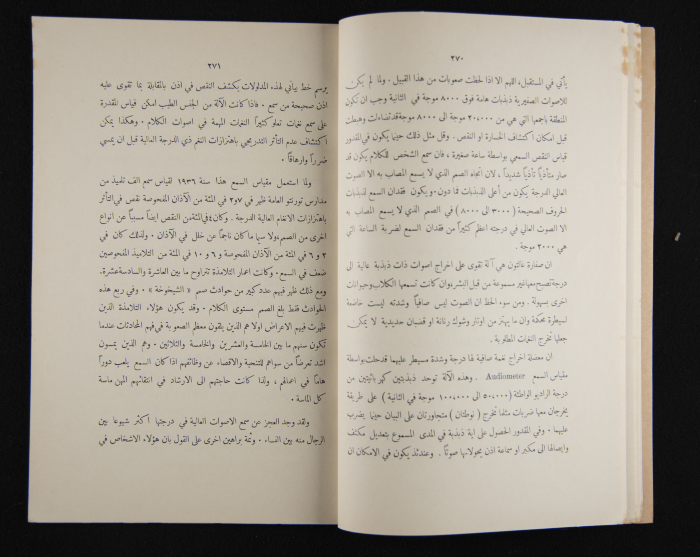 ٢٧٠
يأتي في المستقبل، اللهم الا اذا لحظت صعوبات من هذا القبيل . ولما لم يكن
للاصوات الصفيرية ذبذبات هامة فوق ٨٠٠٠ موجة في الثانية وجب ان تكون
المنطقة باجمعها التي هي من ٢٠،٠٠٠ الى ٨٠٠٠ موجة قد تضاءلت وهبطت
قبل امكان اكتشاف الخسارة او النقص . وقل مثل ذلك حينما يكون في المقدور
قياس النقص السمعي بواسطة ساعة صغيرة ، فان سمع الشخص للكلام يكون قد
صار متأذياً تأذياً شديداً ، لان اتجاه الصم الذي لا يسمع المصاب به الا الصوت
العالي الدرجة يكون من أعلى الذبذبات فما دون . ويكون فقدان السمع لذبذبات
الحروف الصحيحة ( ٣٠٠٠ الى ٨٠٠٠ ) في الصم الذي لا يسمع المصاب به
الا الصوت العالي في درجته اعظم كثيراً من فقدان السمع لضربة الساعة التي
هي ٢٠٠٠ موجة .
ان صفارة غالتون هي آلة تقوى على اخراج اصوات ذات ذبذبة عالية الى
درجة تصبح معها غير مسموعة من قبل البشر، وان كانت تسمعها الكلاب وحيوانات
اخرى بسهولة . ومن سوء الحظ ان الصوت ليس صافياً وشدته ليست خاضعة
لسيطرة محكمة وان ما يهتز من اوتار وشوك رنانة او قضبان حديدية لا يمكن
جعلها تخرج النغمات المطلوبة .
ان معضلة اخراج نغمة صافية لها درجة وشدة مسيطر عليهما قد حلت بواسطة
مقياس السمع Audiometer . وهذه الآلة توحد ذبذبتين كهربائيتين من
درجة الراديو الواطئة ( ٥٠،٠٠٠ الى ١٠٠،٠٠٠ موجة في الثانية ) على طريقة
يخرجان معها ضربات مثلما تخرج ( نوطتان ) متجاورتان على البيان حينما يضرب
عليهما . وفي المقدور الحصول على اية ذبذبة في المدى المسموع بتعديل مكثف
وايصالها الى مكبر او سماعة اذن يحولانها صوتاً . وعندئذ يكون في الامكان ان
٢٧١
يرسم خط بياني لهذه المدلولات يكشف النقص في اذن بالمقابلة بما تقوى عليه
اذن صحيحة من سمع . فاذا كانت الآلة من الجنس الطيب امكن قياس المقدرة
على سمع نغمات تعلو كثيراً النغمات المهمة في اصوات الكلام . وهكذا يمكن
اكتشاف عدم التأثر التدريجي باهتزازات النغم ذي الدرجة العالية قبل ان يمسي
ضرراً وارهاقاً .
ولما استعمل مقياس السمع هذا سنة ١٩٣٦ لقياس سمع الف تلميذ من
مدارس تورنتو العامة ظهر في ٣و٧ في المئة من الآذان المفحوصة نقص في التأثر
باهتزازات الانغام العالية الدرجة . وكان ٤ في المئة من النقص ايضاً مسبباً عن انواع
اخرى من الصمم ، ولا سيما ما كان ناجماً عن خلل في الآذان . ولذلك كان في
٢ و ٦ في المئة من الآذان المفحوصة و ٦ و ١٠ في المئة من التلاميذ المفحوصين
ضعف في السمع . وكانت اعمار التلامذة تتراوح ما بين العاشرة والسادسة عشرة.
ومع ذلك ظهر فيهم عدد كبير من حوادث صمم « الشيخوخة » . وفي ربع هذه
الحوادث فقط بلغ الصم مستوى الكلام . وقد يكون هؤلاء التلامذة الذين
ظهرت فيهم الاعراض اولا هم الذين يلقون معظم الصعوبة في فهم المحادثات عندما
تكون سنهم ما بين الخامسة والعشرين والخامسة والثلاثين . وهم الذين يمسون
اشد تعرضاً من سواهم للتنحية والاقصاء عن وظائفهم اذا كان السمع يلعب دوراً
هاماً في اعمالهم ، ولذا كانت حاجتهم الى الارشاد في انتقائهم المهن ماسة
كل الماسة .
ولقد وجد العجز عن سمع الاصوات العالية في درجتها اكثر شيوعا بين
الرجال منه بين النساء . وثمة براهين اخرى على القول بان هؤلاء الاشخاص في